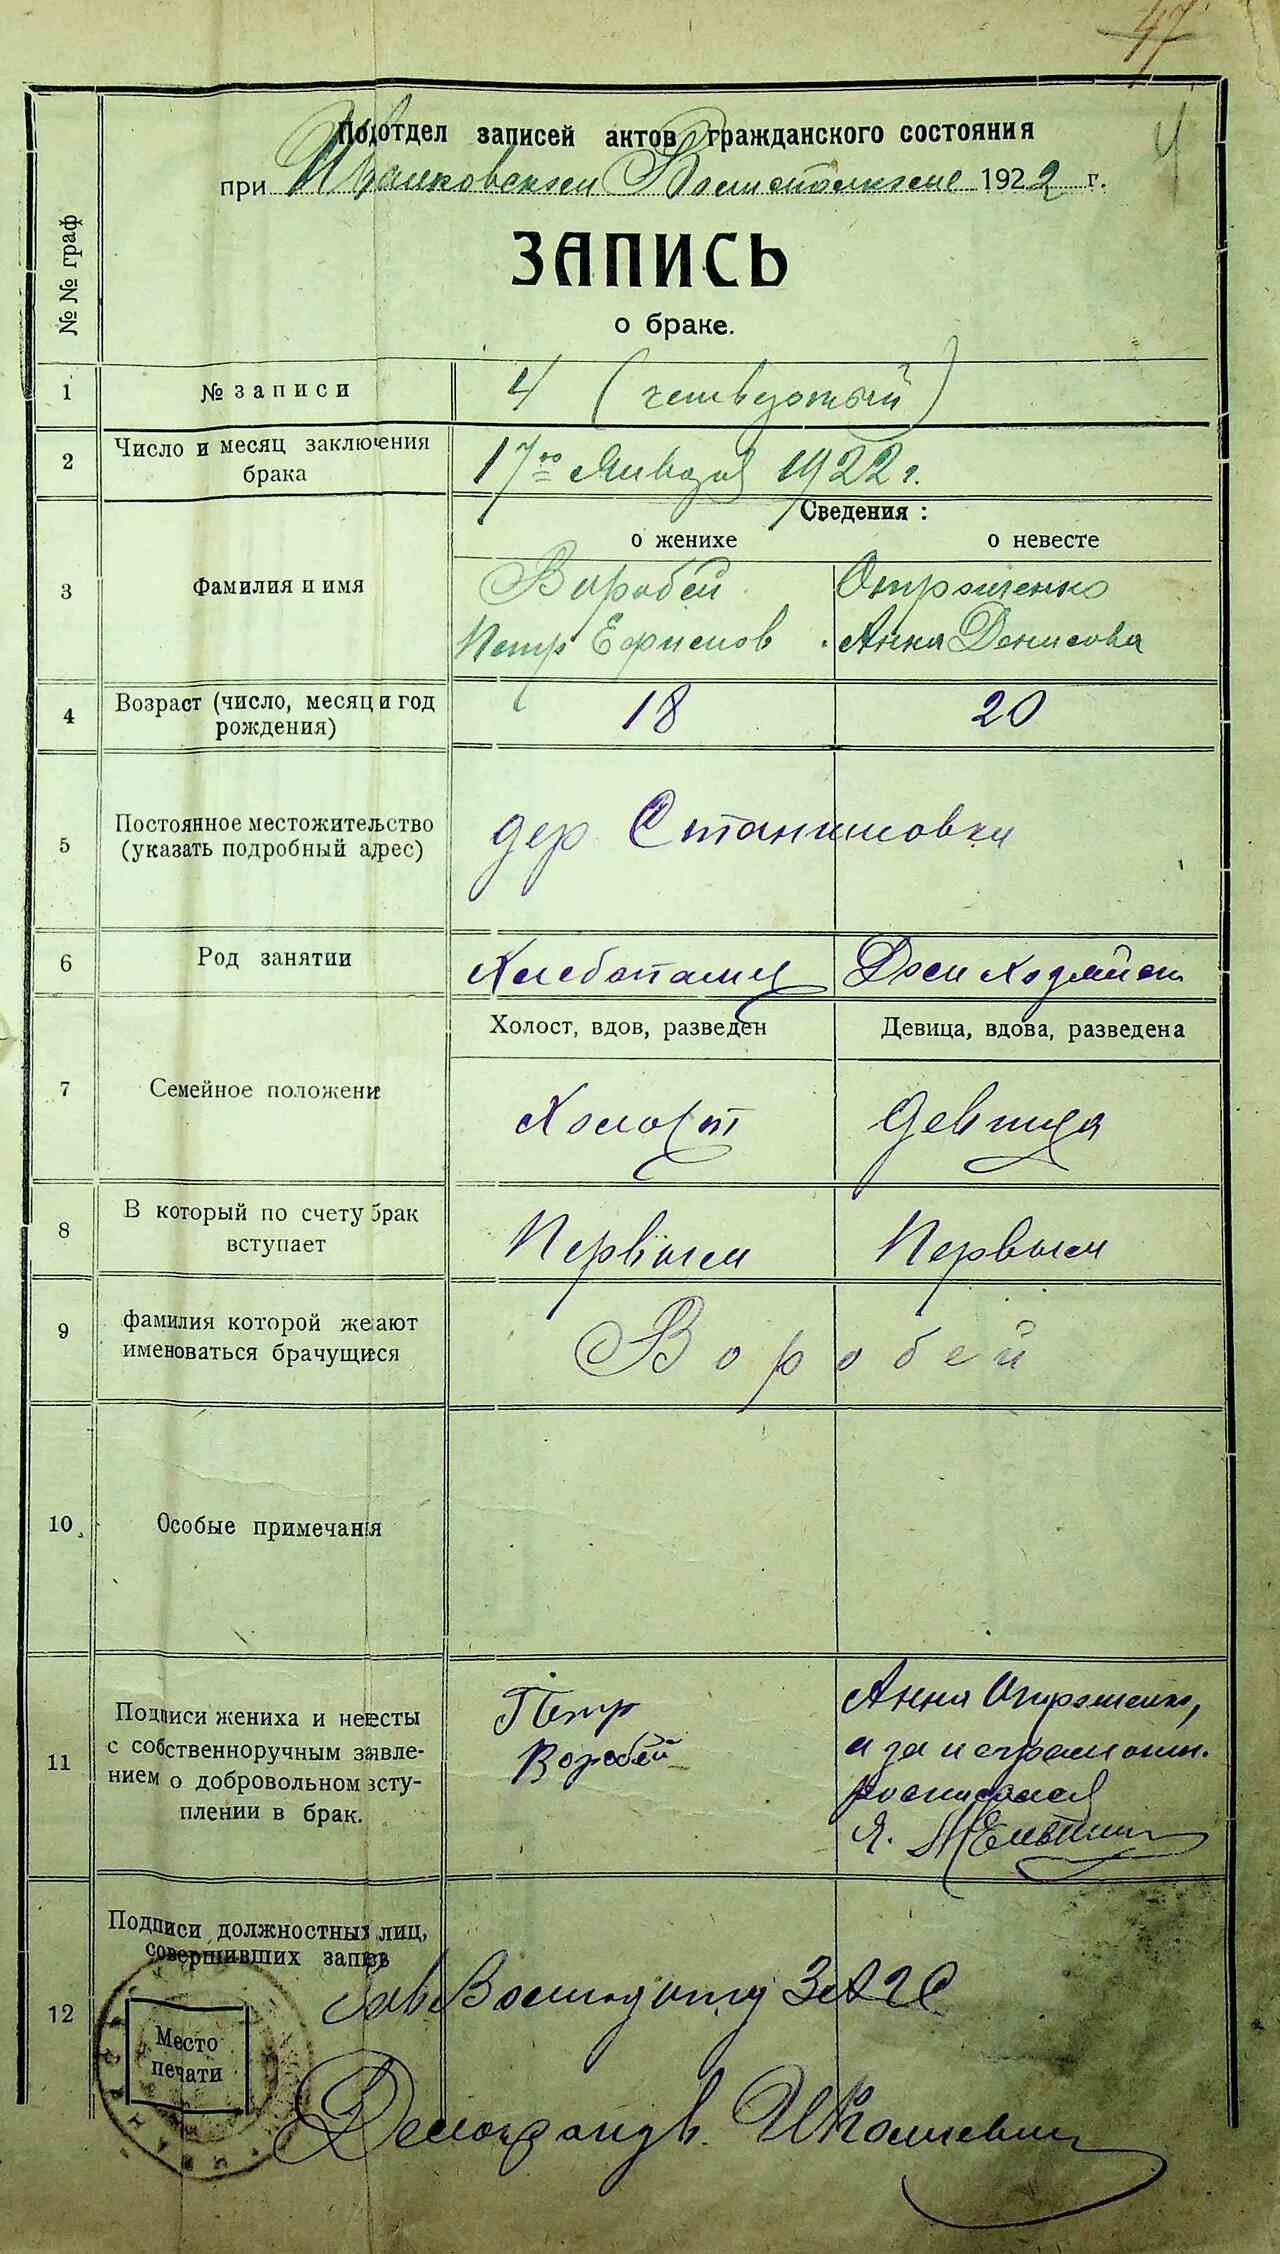 47
4
Подотдел записей актов гражданского состояния
при Иванковском Волисполкоме 1922 г.
ЗАПИСЬ
о браке.
№ № граф
1 № записи 4 (четвертый)
2 Число и месяц заключения брака 17го Января 1922 г.
Сведения :
о женихе о невесте
3 Фамилия и имя Воробей Отрошенко
Петр Ефимов Анна Денисова
4 Возраст (число, месяц и год рождения) 18 20
5 Постоянное местожительство (указать подробный адрес) дер Станишовки
6 Род занятии Хлебопашец Дом Хозяйст
Холост, вдов, разведен Девица, вдова, разведена
7 Семейное положени Холост Девица
8 В который по счету брак вступает Первым Первым
9 фамилия которой желают именоваться брачущиеся Воробей
10 Особые примечания
11 Подписи жениха и невесты
с собственноручным заявле-
нием о добровольном всту-
плении в брак.
Петр
Воробей
Анна Отрошенко,
а за неграмотн.
росписался
Я.
12 Подписи должностных лиц,
совершивших запись
Зав Волподотд ЗАГС
Место
печати
Делопроизв.